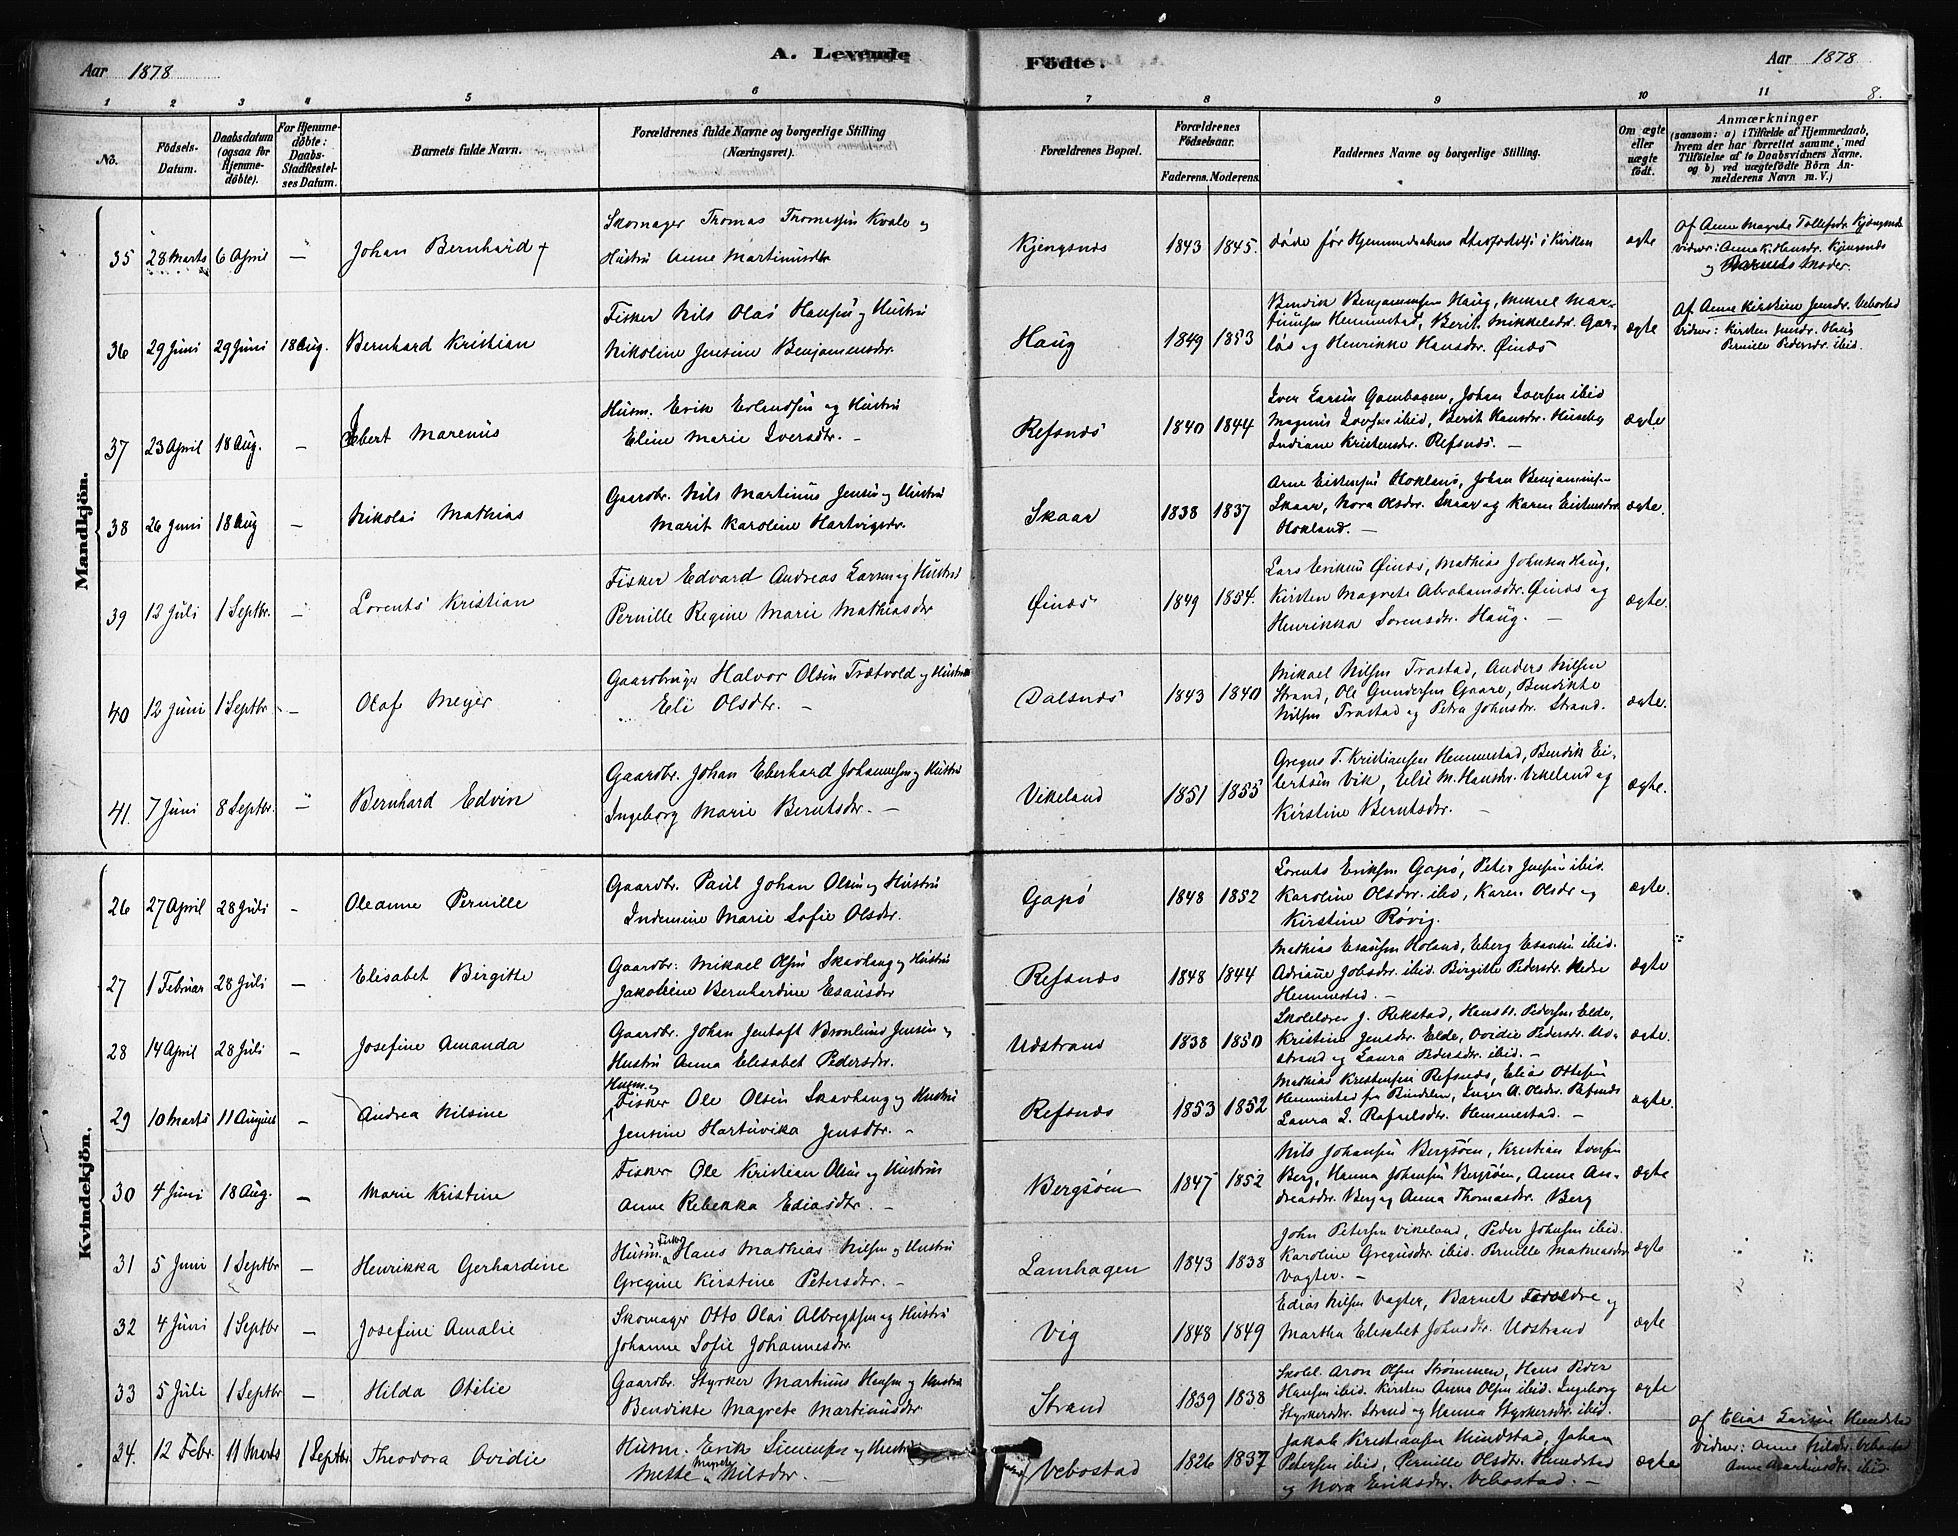 Aar 1878
A. Levende
Födte.
Aar 1878
8.
1 2 3 4 5 6 7 8 9 10 11
No.
Födsels-Datum.
Daabsdatum (ogsaa for Hjemmedöbte).
For Hjemmedöbte: Daabs-Stadfæstelses Datum.
Barnets fulde Navn.
Forældrenes fulde Navne og borgerlige Stilling (Næringsvei).
Forældrenes Bopæl.
Forældrenes Födselsaar.
Faderens. Moderens.
Faddernes Navne og borgerlige Stilling.
Om ægte eller uægte födt.
Anmærkninger
(saasom: a) i Tilfælde af Hjemmedaab, hvem der har forrettet samme, med Tilföielse af to Daabsvidners Navne. og b) ved uægtefödte Börn Anmelderens Navn m. V.)
Mandkjön.
35 28 Marts 6 April - Johan Bernhard +
Skomager Tromas Tromassen Kvale og
Hustru Anne Martinusdtr
Kjengsnes 1843 1845. døde før Hjemmedaabens Stadfæstelse i Kirken ægte
af Anne Magrete Tollefsdr. Kjengsnes
Vidner: Anna K. Hansdr. Kjengsnes
og Barnets Moder.
36 29 Juni 29 Juni 18 Aug. Bernhard Kristian
Fisker Nils Olai Hansen og Hustru
Nikoline Jensine Benjaminsdr.
Haug 1849 1853
Bendik Benjaminsen Haug, Mikael Mar-
tinusen Hemmestad, Berit Mikkelsdr. Gar-
løs og Henrikke Hansdr. Øinæs
ægte
af Anne Kirstine Jensdr. Vebostad
Vidner: Kirsten Jensdr. Haug
Pernille Pedersdr. ibid.
37 23 April 18 Aug. - Ebert Marenus
Husm. Erik Erlandsen og Hustru
Eline Marie Iversdtr. -
Refsnes 1840 1844
Iver Larsen Gambogen, Johan Iversen ibid
Magnus Iversen ibid, Berit Hansdr. Huseby
Indiane Kristensdr. Refsnes. -
ægte
38 26 Juni 18 Aug - Nikolai Mathias
Gaardbr. Nils Martinus Jensen og Hustru
Marit Karoline Hartvigsdr.
Skaar 1838 1837
Arne Eistensen Hokland, Johan Benjaminsen
Skaar, Nora Olsdr. Skaar og Karen Eistensdr.
Hokland. -
ægte.
39 12 Juli 1 Septbr. - Lorents Kristian
Fisker Edvard Andreas Larsen og Hustru
Pernille Regine Marie Mathiasdr
Øinæs 1849 1854.
Lars Eriksen Øinæs, Mathias Johnsen Haug,
Kirsten Magrete Abrahamsdr. Øinæs og
Henrikka Sorensdr. Haug. -
ægte.
40 12 Juni 1 Septbr - Olaf Meyer
Gaardbruger Halvor Olsen Trætvold og Hustru
Eli Olsdtr. -
Dalsnæs 1843 1840
Mikael Nilsen Trastad, Anders Nilsen
Strand, Ole Gundersen Gaare, Bendikte
Nilsen Trastad og Petra Johnsdr. Strand.
ægte.
41. 7 Juni 8 Septbr. - Bernhard Edvin
Gaardbr. Johan Eberhard Johannesen og Hustru
Ingeborg Marie Berntsdr. -
Vikeland 1851 1855
Gregus T. Kristiansen Hemmestad, Bendik Ei-
lertsen Vik, Else M. Hansdr. Vikeland og
Kirstine Berntsdr. -
ægte.
Kvindekjön.
26 27 April 28 Juli - Oleanne Pernille
Gaardbr. Paul Johan Olsen og Hustru
Indemine Marie Sofie Olsdr.
Gapø 1848 1852
Lorents Eriksen Gapø, Peter Jensen ibid.
Karoline Olsdr. ibid, Karen Olsdr og
Kirstine Røvig.
ægte.
27 1 Februar 28 Juli - Elisabet Birgitte
Gaardbr. Mikael Olsen Skavhaug og Hustru
Jakobine Bernhardine Esausdr
Refsnes 1848 1844
Mathias Esausen Holand, Eberg Esausen ibid.
Adriane Jobsdr. ibid. Birgitte Pedersdr. Nedre
Hemmestad. -
ægte
28 14 April 28 Juli - Josefine Amanda
Gaardbr. Johan Jentoft Bronlund Jensen og
Hustru Anna Elisabet Pedersdr.
Udstrand 1838 1850
Skolelærer J. Rekstad, Hans H. Pedersen Elde,
Kristine Jensdr. Elde, Ovidie Pedersdr. Ud-
strand og Laura Pedersdr. ibid. -
ægte.
29 10 Marts 11 August - Andrea Nilsine
Husm. og
Fisker Ole Olsen Skavhaug og Hustru
Jensine Hartuvika Jensdtr. -
Refsnes 1853 1852
Mathias Kristensen Refsnes, Elias Ottesen
Hemmestad fra Bindalen, Inger A. Olsdr. Refsnes
Laura L. Rafaelsdr. Hemmestad. -
ægte.
30 4 Juni 18 Aug. - Marie Kristine
Fisker Ole Kristian Olsen og Hustru
Anne Rebekka Ediasdtr. -
Bergsøen 1847 1852
Nils Johansen Bergsøen, Kristian Iversen
Berg, Hanna Johnsen Bergsøen, Anna An-
dreasdr. Berg og Anna Thomasdr. Berg
ægte
31 5 Juni 1 Septbr - Henrikka Gerhardine
Husm. og Fisker Hans Mathias Nilsen og Hustru
Gregine Kirstine Petersdtr. -
Lamhagen 1843 1838
John Petersen Vikeland, Peder Johnsen ibid.
Karoline Gregusdr. ibid. Pernille Mathiasdr
Vagter. -
ægte
32 4 Juni 1 Septbr - Josefine Amalie
Skomager Otto Olai Albregtsen og Hustru
Johanne Sofie Johannesdr.
Vig 1848 1849
Edias Nilsen Vagter, Barnets Forældre og
Martha Elisabet Johnsdr. Udstrand
ægte
33 5 Juli 1 Septbr - Hilda Otilie
Gaardbr. Styrker Martinus Hansen og Hustru
Bendikte Magrete Martinusdr
Strand 1839 1838
Skoll. Aron Olsen Strømmen, Hans Peder
Hansen ibid. Kirsten Anna Olsen ibid. Ingeborg
Styrkersdr. Strand og Hanna Styrkersdr. ibid.
ægte
34. 12 Febr. 11 Marts 1 Septbr. Theodora Ovidie
Husm. Erik Simensen og Hustru
Mette Nilsdr. -
Vebostad 1826 1837
Jakob Kristiansen Hundstad, Johan
Petersen ibid, Pernille Olsdtr. Hundstad
og Nora Eriksdr. Vebostad. -
ægte
af Elias Larsen Hundstad
Vidner: Anne Nilsdr. Vebostad
Anne Martinsdtr. ibid.